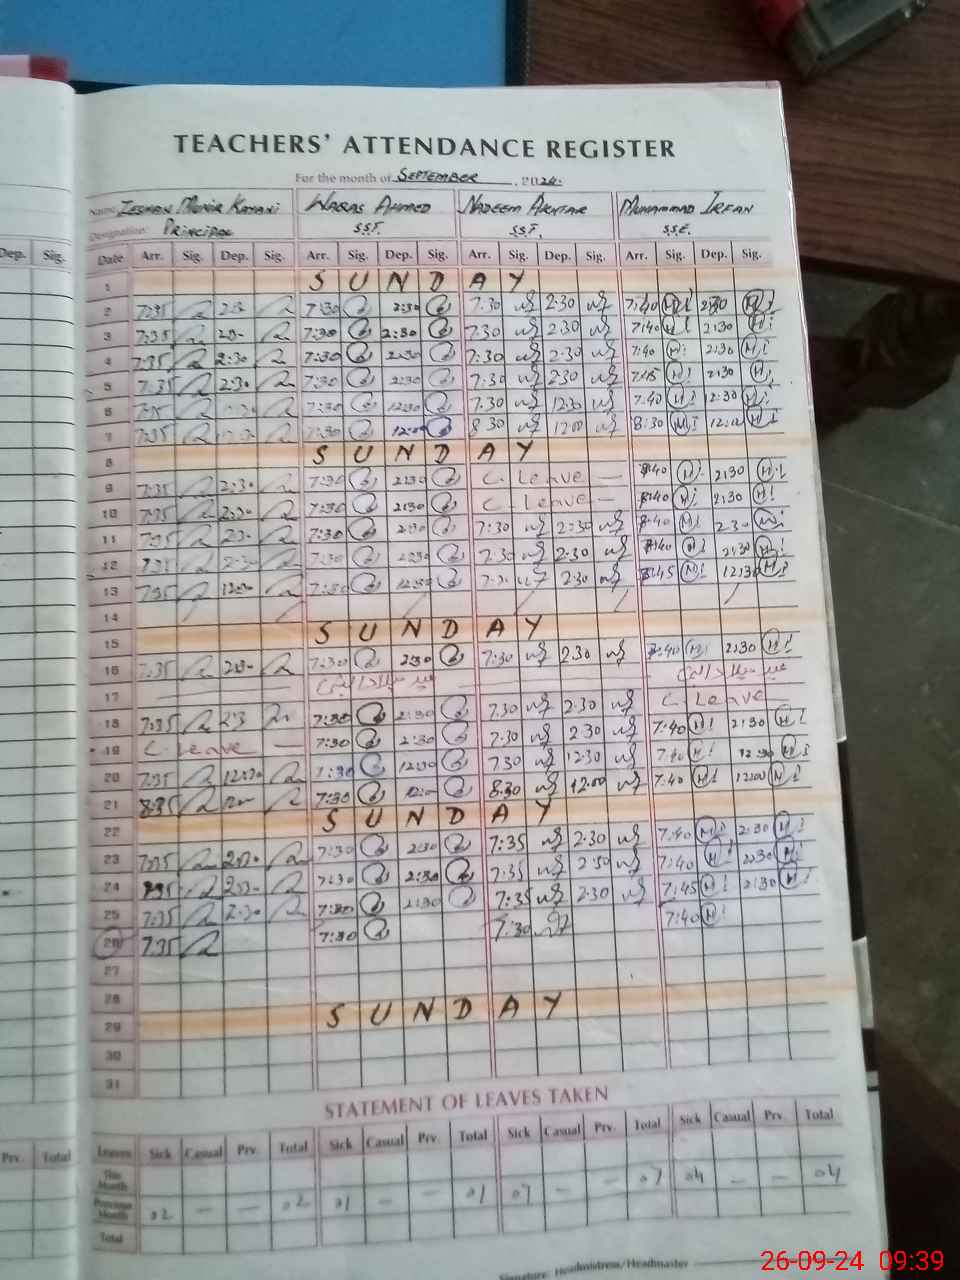 TEACHERS' ATTENDANCE REGISTER
For the month of SEPTEMBER, 2024.
Name ZEESHAN MUNIR KAYANI WAQAS AHMED NADEEM AKHTAR MUHAMMAD IRFAN
Designation: PRINCIPAL S.S.T. S.S.T. S.S.E.
Dep. Sig. Date Arr. Sig. Dep. Sig. Arr. Sig. Dep. Sig. Arr. Sig. Dep. Sig. Arr. Sig. Dep. Sig.
1 SUNDAY
2 7:35 2:30 7:30 2:30 7:30 2:30 7:40 2:30
3 7:35 2:30 7:30 2:30 7:30 2:30 7:40 2:30
4 7:35 2:30 7:30 2:30 7:30 2:30 7:40 2:30
5 7:35 2:30 7:30 2:30 7:30 2:30 7:45 2:30
6 7:30 12:30 7:30 12:30 7:40 2:30
7 7:35 7:30 12:00 8:30 12:00 8:30
8 SUNDAY
9 7:35 2:30 7:30 2:30 C. Leave — 2:30
10 7:35 2:30 7:30 2:30 C. Leave — 2:30
11 7:35 2:30 7:30 2:30 7:30 2:30 2:30
12 2:30 7:30 2:30 7:30 2:30 2:30
13 7:35 12:30 7:30 12:30 2:30 12:30
14
15 SUNDAY
16 7:35 2:30 7:30 2:30 7:30 2:30 7:40 2:30
17 عید میلاد النبی عید میلاد النبی
C. Leave —
18 7:35 7:30 2:30 7:30 2:30 7:40 2:30
19 C. Leave — 7:30 2:30 7:30 2:30 7:40 12:30
20 7:35 12:30 7:30 12:30 7:30 12:30 7:40 12:00
21 8:35 7:30 12:00 8:30 12:00
22 SUNDAY
23 7:35 2:30 7:30 2:30 7:35 2:30 7:40 2:30
24 2:30 7:30 2:30 7:35 2:30 7:40 2:30
25 7:35 2:30 7:30 2:30 7:35 2:30 7:45 2:30
26 7:35 7:30 7:30 7:40
27
28
29 SUNDAY
30
31
STATEMENT OF LEAVES TAKEN
Prv. Total Leaves Sick Casual Prv. Total Sick Casual Prv. Total Sick Casual Prv. Total Sick Casual Prv. Total
This Month
Previous Month 02 — — 02 01 — — 01 07 — — 07 04 — — 04
Total
Signature: Headmistress/Headmaster
26-09-24 09:39